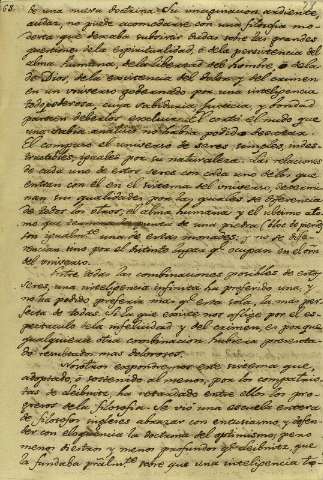 68.
de una nueva doctrina. Su imaginacion ardiente,
audaz, no puede acomodarse con una filosofia mo
desta que dexaba subsistir dudas sobre las grandes
questiones de la espiritualidad, ó de la persistencia del
alma humana, de la libertad del hombre, ó de la de
Dios, de la existencia del dolor, y del crimen
en un universo gobernado por una inteligencia
todopoderosa, cuya sabiduria, justicia, y bondad
parecen deberlos excluir. El cortó el nudo que
una sabia analisis no habria podido desatar.
El compuso el universo de seres simples, indes-
tructibles, iguales por su naturaleza. Las relaciones
de cada uno de estos seres con cada uno de los que
entran con él en el sistema del universo, determi
nan sus qualidades, por las quales se diferencia
de todos los otros; el alma humana y el ultimo ato
mo que de una piedra
son igualmte. una de estas monades, y no se dife-
rencian sino por el distinto lugar qe. ocupan en el orn.
del universo.
Entre todas las combinaciones posibles de estos
seres, una inteligencia infinita ha preferido una, y
no ha podido preferir mas qe. esta sola, la mas per
fecta de todas. Si la que existe nos aflige por el es-
pectaculo de la infelicidad y del crimen, es porque
qualquiera otra combinacion hubiera presenta-
do resultados mas dolorosos.
Nosotros expondremos este sistema que,
adoptado, ó sostenido al menos, por los compatrio-
tas de Leibnitz, ha retardado entre ellos los pro-
gresos de la filosofia. Se vió una escuela entera
de filosofos ingleses abrazar con entusiasmo y defen-
der con eloquencia la doctrina del optimismo; pero
menos diestros y menos profundos qe. Leibnitz, que
la fundaba sobre que una inteligencia to-